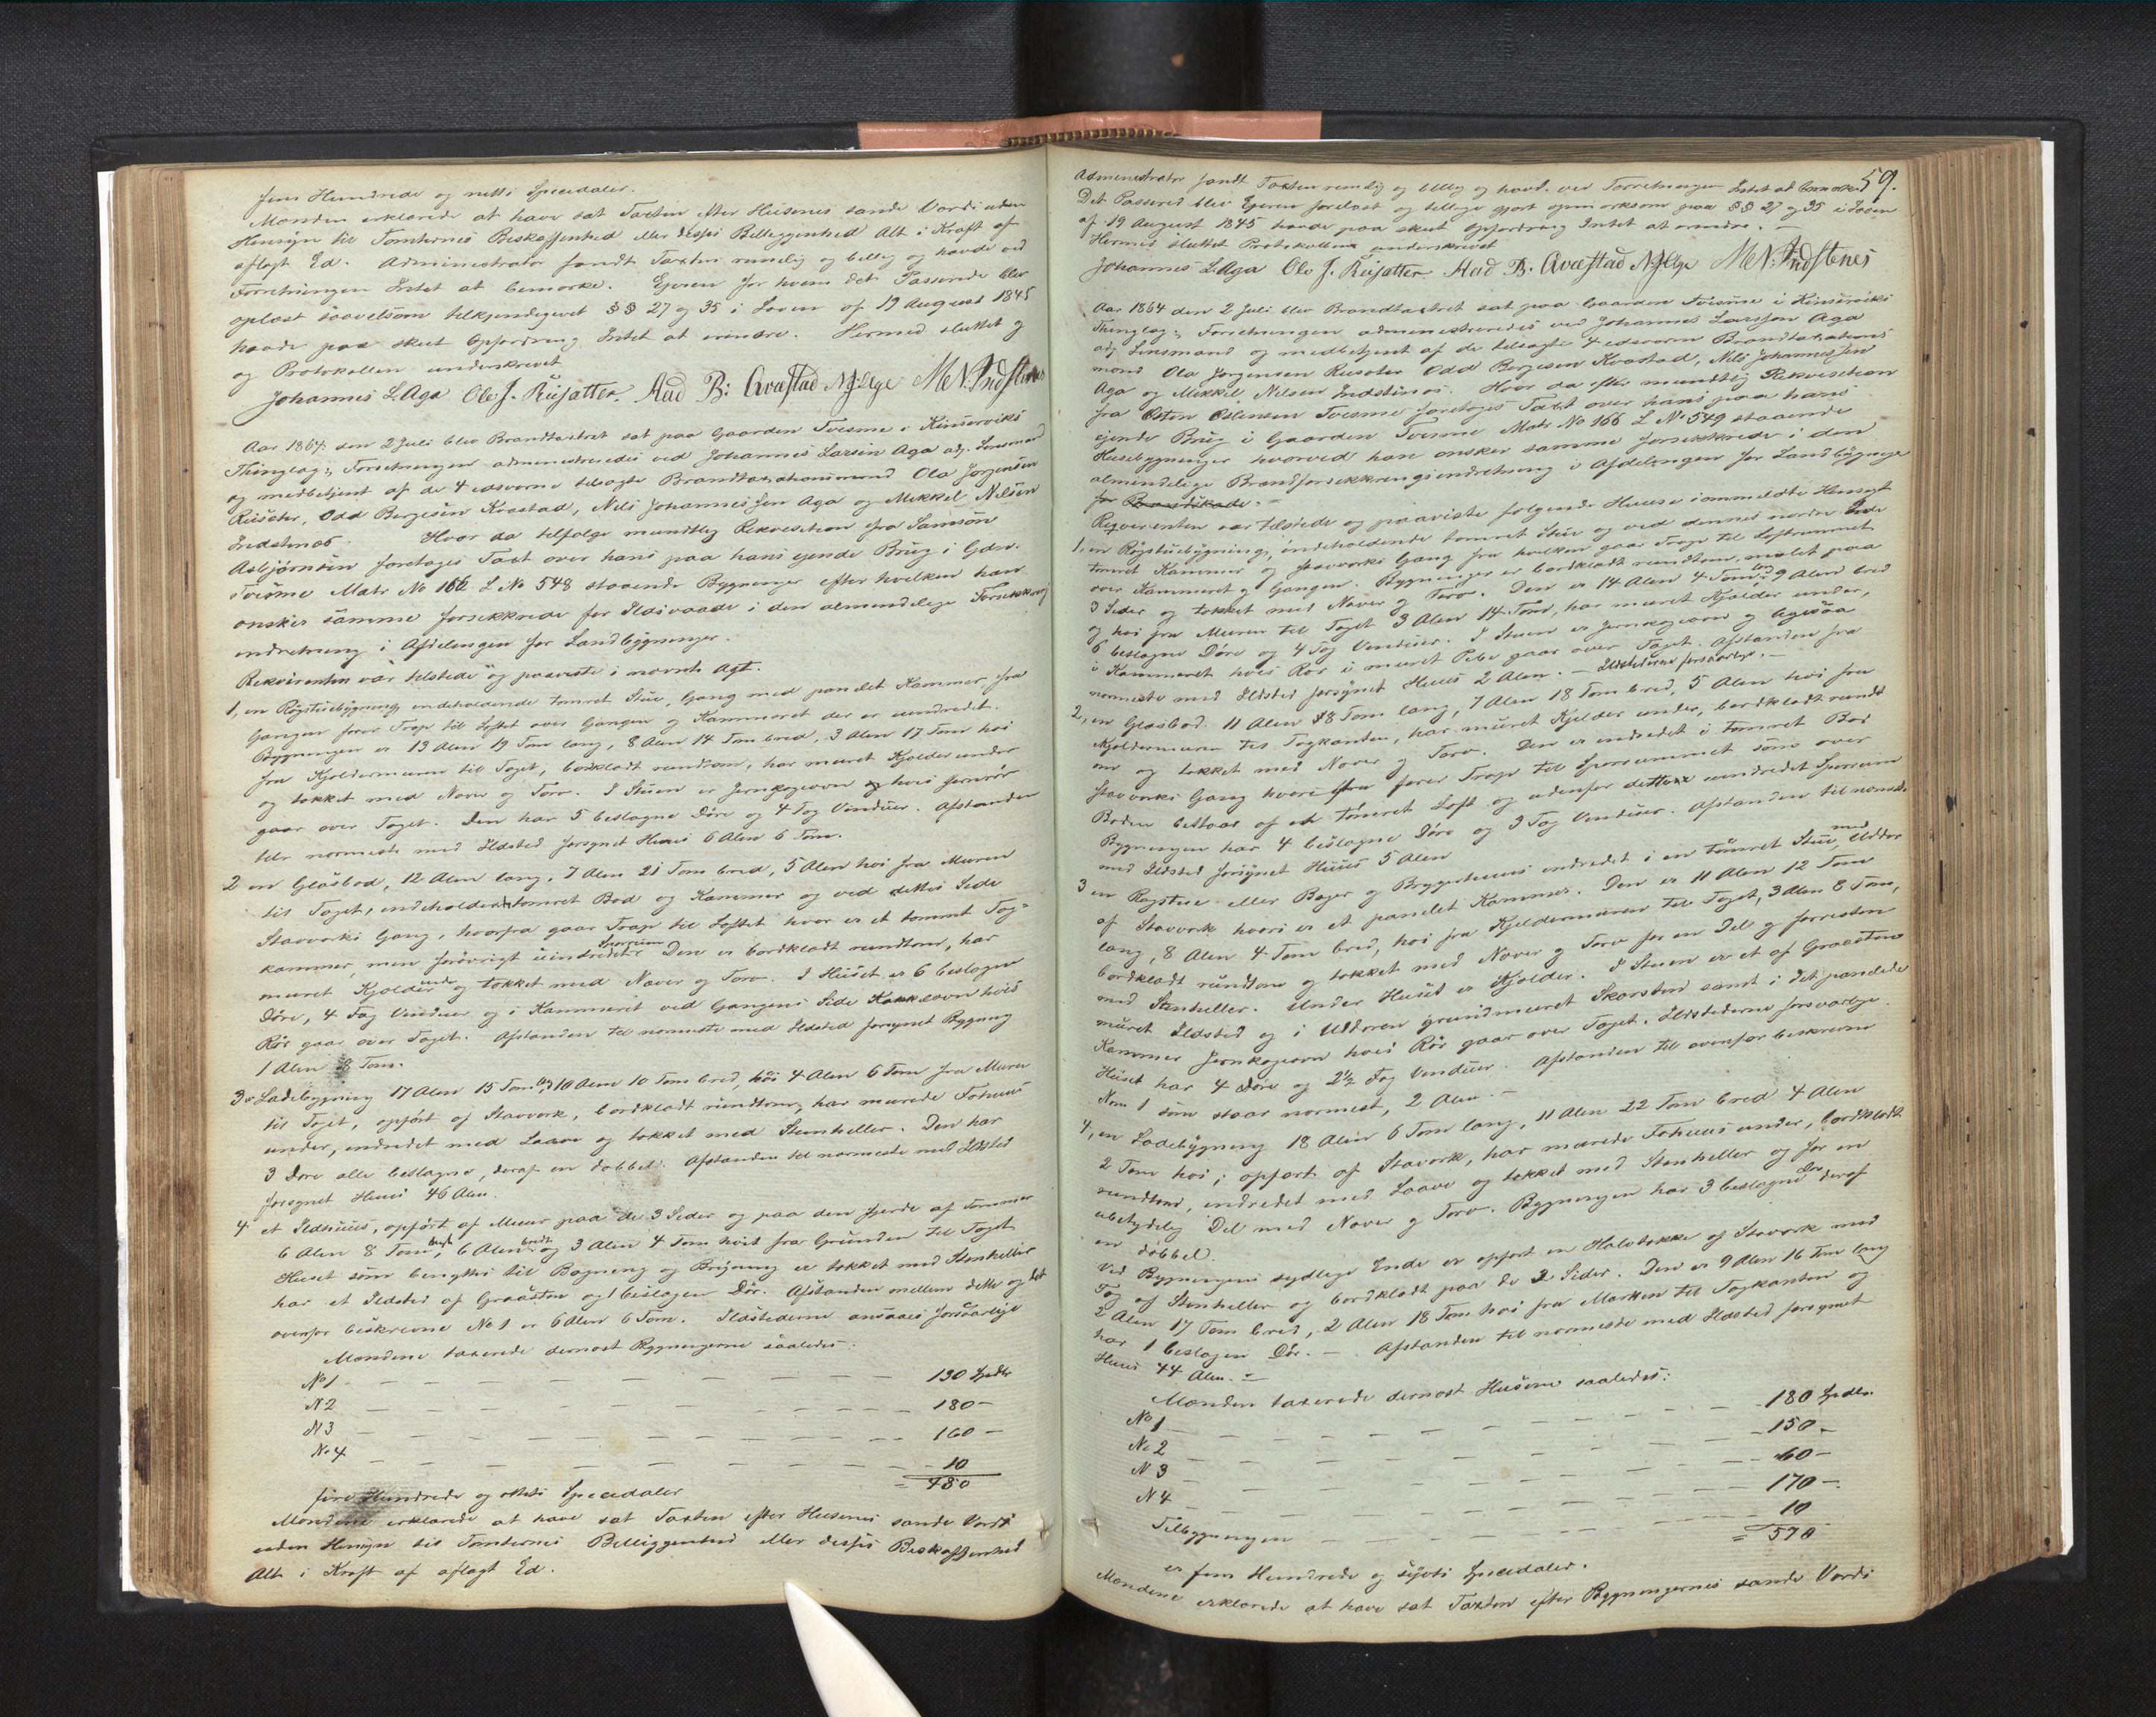 fem Hundrede og nitti Speciedaler.
Mændene erklærede at have sat Taxten efter Husenes sande Værdi uden
Hensyn til Tomternes Beskaffenhed eller disses Belliggenhed Alt i Kraft af
aflagt Ed. Administrator fandt Taxten rimelig og billig og havde ved
Forretningen Intet at bemærke. Eieren for hvem det Passerede blev
oplæst saavelsom tilkjendegivet §§ 27 og 35 i Loven af 19 August 1845
havde paa skeet Opfordring Intet at erindre. Hermed sluttet
og Protokollen underskrevet
Johannes L. Aga Ole J. Riisætter. Aad B: Qvæstad N J Aga M N. Indstenes
Aar 1864 den 2 Juli blev Brandtaxtret sat paa Gaarden Tveisme i Kinserviks
Thinglag; Forretningen administreredes ved Johannes Larsen Aga adj. Lensmand
og medbetjent af de 4 edsvorne tilsagte Brandtaxationsmænd Ole Jørgensen
Riisæter, Odd Bergesen Kvæstad, Nils Johannessen Aga og Mikkel Nilsen
Indstenes. Hvor da tilfølge mundtlig Rekvisition fra Samson
Asbjørnsen foretages Taxt over hans paa hans eiende Brug i Gdn.
Tveisme Matr No 166 L No 548 staaende Bygninger efter hvilken han
ønsker samme forsikkrede for Ildsvaade i den almindelige Forsikkrings
indretning i Afdelingen for Landbygninger.
Rekvirenten var tilstede og paaviste i nævnte Agt.
1, en Røgstuebygning indeholdende tømret Stue, Gang med panelet Kammer, fra
Gangen fører Trap til Loftet over Gangen og Kammeret der er uindredet.
Bygningen er 13 Alen 19 Tom lang, 8 Alen 14 Tom bred, 3 Alen 17 Tom høi
fra Kjeldermuren til Taget, bordklædt rundtom, har muret Kjelder under
og tækket med Næver og Torv. I Stuen er Jernkogeovn hvis Jernrør
gaar over Taget. Den har 5 beslagne Døre og 4 Fag Vinduer. Afstanden
til nærmeste med Ildsted forsynet Huus 6 Alen 6 Tom.
2 en Glasbod, 12 Alen lang, 7 Alen 21 Tom bred, 5 Alen høi fra Muren
til Taget, indeholdende tømret Bod og Kammer og ved dettes Side
Stavverks Gang, hvorfra gaar Trap til Loftet hvor er et tømret Tag=
kammer, men forøvrigt uindredet Sperrum. Den er bordklædt rundtom, har
muret Kjelder under og tækket med Næver og Torv. I Huset er 6 beslagne
Døre, 4 Fag Vinduer og i Kammeret ved Gangens Side Kakkelovn hvis
Rør gaar over Taget. Afstanden til nærmeste med Ildsted forsynet Bygning
1 Alen 8 Tom.
3 en Ladebygning 17 Alen 15 Tom lg, 10 Alen 10 Tom bred, høi 4 Alen 6 Tom fra Muren
til Taget, opført af Stavverk, bordklædt rundtom, har murede Fæhuus
under, indredet med Laave og tækket med Steenheller. Den har
3 Døre alle beslagne, deraf en dobbel. Afstanden til nærmeste med Ildsted
forsynet Huus 46 Alen.
4 et Ildhuus, opført af Muur paa de 3 Sider og paa den fjerde af Tømmer
6 Alen 8 Tom langt, 6 Alen bredt og 3 Alen 4 Tom høit fra Grunden til Taget
Huset som benyttes til Bagning og Brygning er tækket med Steenheller
har et Ildsted af Graasten og 1 beslagen Dør. Afstanden mellem dette og det
ovenfor beskrevne No 1 er 6 Alen 6 Tom. Ildstederne ansaaes forsvarlige
Mændene taxerede dernæst Bygningerne saaledes:
No 1 — — — — 130 Spdlr
N 2 — — — — 180 —
N 3 — — — — 160 —
No 4 — — — — 10
= 480
fire Hundrede og otteti Speciedaler
Mændene erklærede at have sat Taxten efter Husenes sande Værdi
uden Hensyn til Tomternes Belliggenhed eller disses Beskaffenhed
Alt i Kraft af aflagt Ed.
59.
Administrator fandt Taxten rimelig og billig og havde ved Forretningen Intet at bemærke.
Det Passered blev Eieren forelæst og tillige gjort opmærksom paa §§ 27 og 35 i Loven
af 19 August 1845 havde paa skeet Opfordring Intet at erindre. —
Hermed sluttet Protokollen underskrevet
Johannes L. Aga Ole J. Riisætter Aad B. Qvæstad N J Aga M N. Indstenes
Aar 1864 den 2 Juli blev Brandtaxtret sat paa Gaarden Tveisme i Kinserviks
Thinglag; Forretningen administreredes ved Johannes Larssen Aga
adj Lensmand og medbetjent af de tilsagte 4 edsvorne Brandtaxations
mænd Ole Jørgensen Riisæter Odd Bergesen Kvæstad, Nils Johannessen
Aga og Mikkel Nilsen Indstenes. Hvor da efter mundtlig Rekvisition
fra Østen Østensen Tveisme foretoges Taxt over hans paa hans
eiende Brug i Gaarden Tveisme Matr No 166 L No 549 staaende
Husebygninger hvorved han ønsker samme forsikkrede i den
almindelige Brandforsikkringsindretning i Afdelingen for Landbygninger
for Brandskade. —
Reqvirenten var tilstede og paaviste følgende Huuse i anmeldte Hensigt
1, en Røgstuebygning, indeholdende tømret Stue og ved dennes nordre Ende
tømret Kammer og Stavverks Gang fra hvilken gaar Trap til Loftrummet
over Kammeret og Gangen. Bygningen er bordklædt rundtom, malet paa
3 Sider og tækket med Næver og Torv. Den er 14 Alen 4 Tom lang 9 Alen bred
og høi fra Muren til Taget 3 Alen 14 Tom, har muret Kjelder under,
6 beslagne Døre og 4 Fag Vinduer. I Stuen er Jernkogeovn og ligesaa
i Kammeret hvis Rør i muret Pibe gaar over Taget. Afstanden fra
nærmeste med Ildsted forsynet Huus 2 Alen. — Ildstederne forsvarlige. —
2, en Glasbod 11 Alen 18 Tom lang, 7 Alen 18 Tom bred, 5 Alen høi fra
Kjeldermuren til Tagkanten, har muret Kjelder under, bordklædt rundt
om og tækket med Næver og Torv. Den er indredet i tømret Bod
Stavverks Gang hvori fører Trap til Sperrummet som over
Boden bestaar af tømret Loft og udenfor dette uindredet Sperrum
Bygningen har 4 beslagne Døre og 3 Fag Vinduer. Afstanden til nærmeste
med Ildsted forsynet Huus 5 Alen
3 en Røgstue eller Bager og Bryggerhuus indredet i en tømret Stue, med Uldør
af Stavverk hvori er et panelet Kammer. Den er 11 Alen 12 Tom
lang, 8 Alen 4 Tom bred, høi fra Kjeldermuren til Taget, 3 Alen 8 Tom,
bordklædt rundtom og tækket med Næver og Torv for en Del og forresten
med Steenheller. Under Huset er Kjelder. I Stuen er et af Graasten
muret Ildsted og i Uldøren grundmuret Skorsten samt i det panelede
Kammer Jernkogeovn hvis Rør gaar over Taget. Ildstederne forsvarlige.
Huset har 4 Døre og 2½ Fag Vinduer. Afstanden til ovenfor beskrevne
Num 1 som staar nærmest, 2 Alen. —
4, en Ladebygning 18 Alen 6 Tom lang, 11 Alen 22 Tom bred 4 Alen
2 Tom høi; opført af Stavverk, har murede Fæhuus under, bordklædt
rundtom, indredet med Laave og tækket med Stenheller og for en
ubetydelig Del med Næver og Torv. Bygningen har 3 beslagne Døre deraf
en dobbel.
Ved Bygningens sydlige Ende er opført en Halvtække af Stavverk med
Tag af Stenheller og bordklædt paa de 3 Sider. Den er 9 Alen 16 Tom lang
2 Alen 17 Tom bred, 2 Alen 18 Tom høi fra Marken til Tagkanten og
har 1 beslagen Dør. — Afstanden til nærmeste med Ildsted forsynet
Huus 44 Alen. —
Mændene taxerede dernæst Husene saaledes:
No 1 — — — — 180 Spdlr.
No 2 — — — — 150 —
N 3 — — — — 60 —
N 4 — — — — 170 —
Tilbygningen — — — — 10
= 570
er fem Hundrede og sytti Speciedaler.
Mændene erklærede at have sat Taxten efter Bygningernes sande Værdi